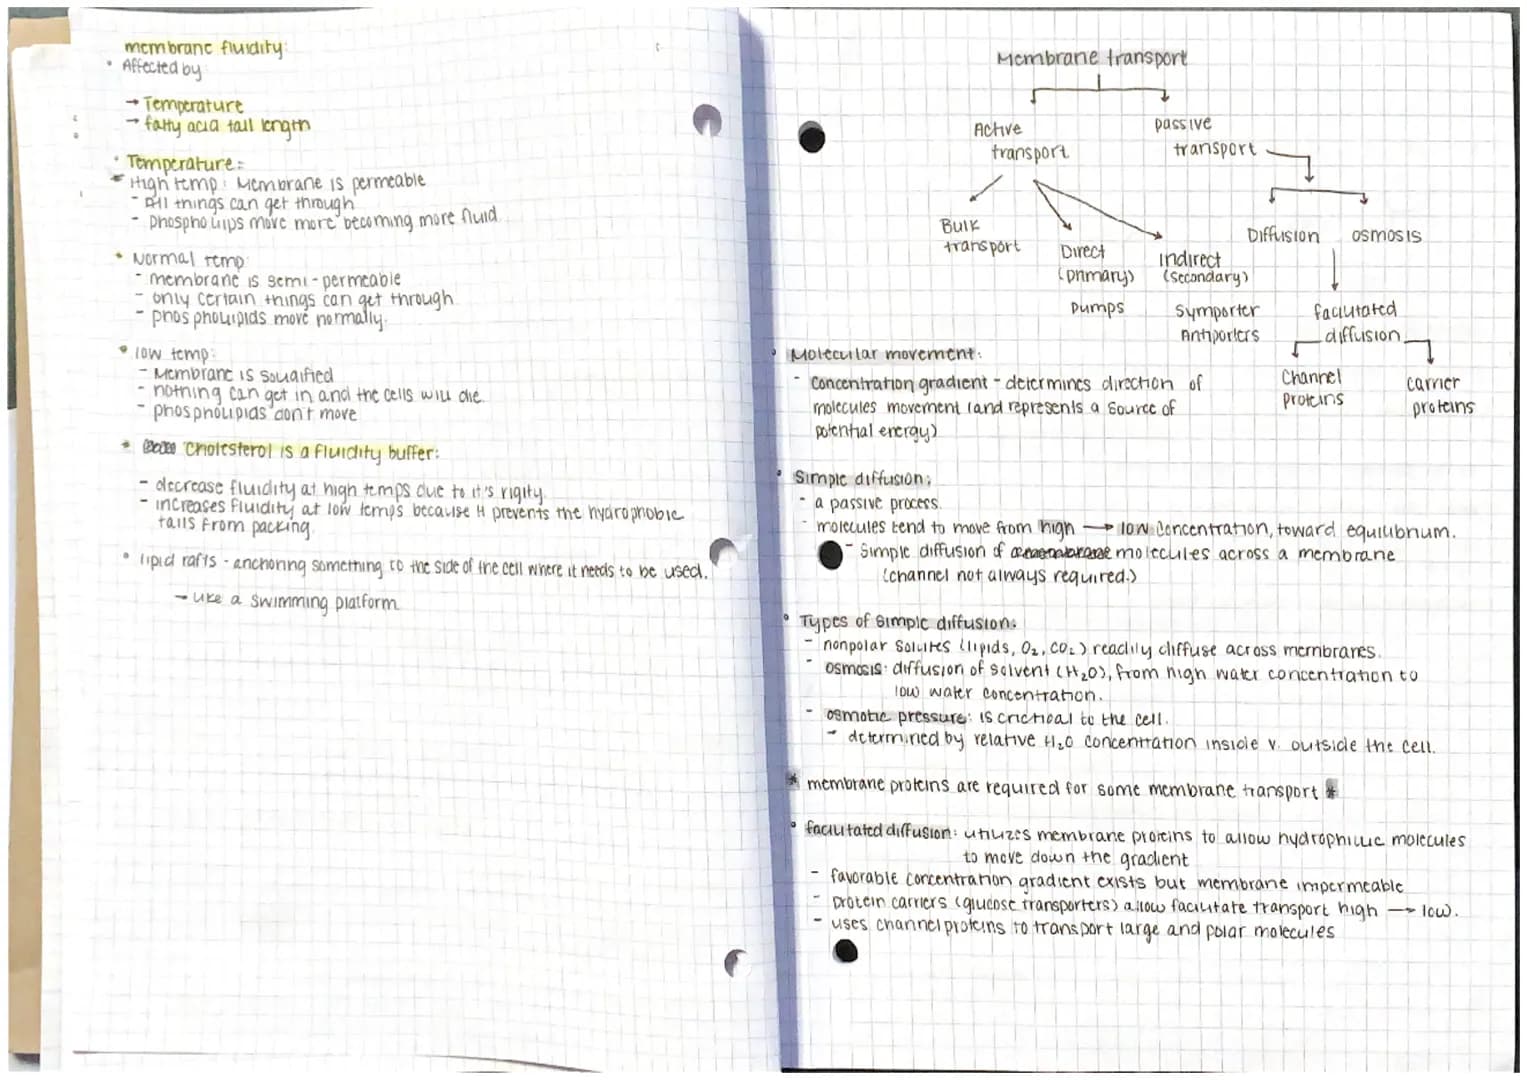 membrane fluidity:
• Affected by:
→ Temperature
→ fatty acid tail length
• Temperature:
* High temp: Membrane is permeable
- All things can get through
- phospholips move more becoming more fluid.
• Normal temp:
- membrane is semi-permeable
- only certain things can get through.
- phospholipids move normally.
• low temp:
- Membrane is
- nothing can get in and the cells will die.
- phospholipids don't move
• Cholesterol is a fluidity buffer:
- decrease fluidity at high temps due to it's rigity.
- increases fluidity at low temps because it prevents the hydrophobic
tails from packing.
• lipid rafts - anchoring something to the side of the cell where it needs to be used.
→ like a swimming platform.
Membrane transport
Active
transport
passive
transport
Bulk
transport
Direct
(primary)
Pumps
Indirect
(secondary)
Symporter
Antiporters
Diffusion
osmosis
facilitated
diffusion
Channel
proteins
carrier
proteins
• Molecular movement:
- Concentration gradient - determines direction of
molecules movement (and represents a source of
potential energy)
• Simple diffusion:
- a passive process.
- molecules tend to move from high → low concentration, toward equilibrium.
- Simple diffusion of molecules across a membrane
(channel not always required.)
• Types of simple diffusion:
- nonpolar solutes (lipids, O₂, CO₂) readily diffuse across membranes.
- osmosis: diffusion of solvent (H₂O), from high water concentration to
low water concentration.
- osmotic pressure: is crictical to the cell.
- determined by relative H₂O concentration inside v. outside the cell.
* membrane proteins are required for some membrane transport *
• facilitated diffusion: utilizes membrane proteins to allow hydrophilic molecules
to move down the gradient
- favorable concentration gradient exists but membrane impermeable
- protein carriers (glucose transporters) allow facilitate transport high → low.
- uses channel proteins to transport large and polar molecules